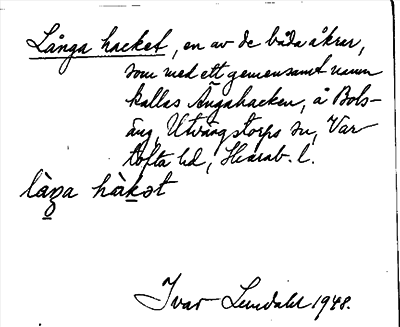 Långa hacket, en av de båda åkrar,
som med ett gemensamt namn
kallas Ängahacken, å Bols-
äng, Utvängstorps sn, Var-
tofta hd, Skarab. l.
Ivar Lundahl 1948.